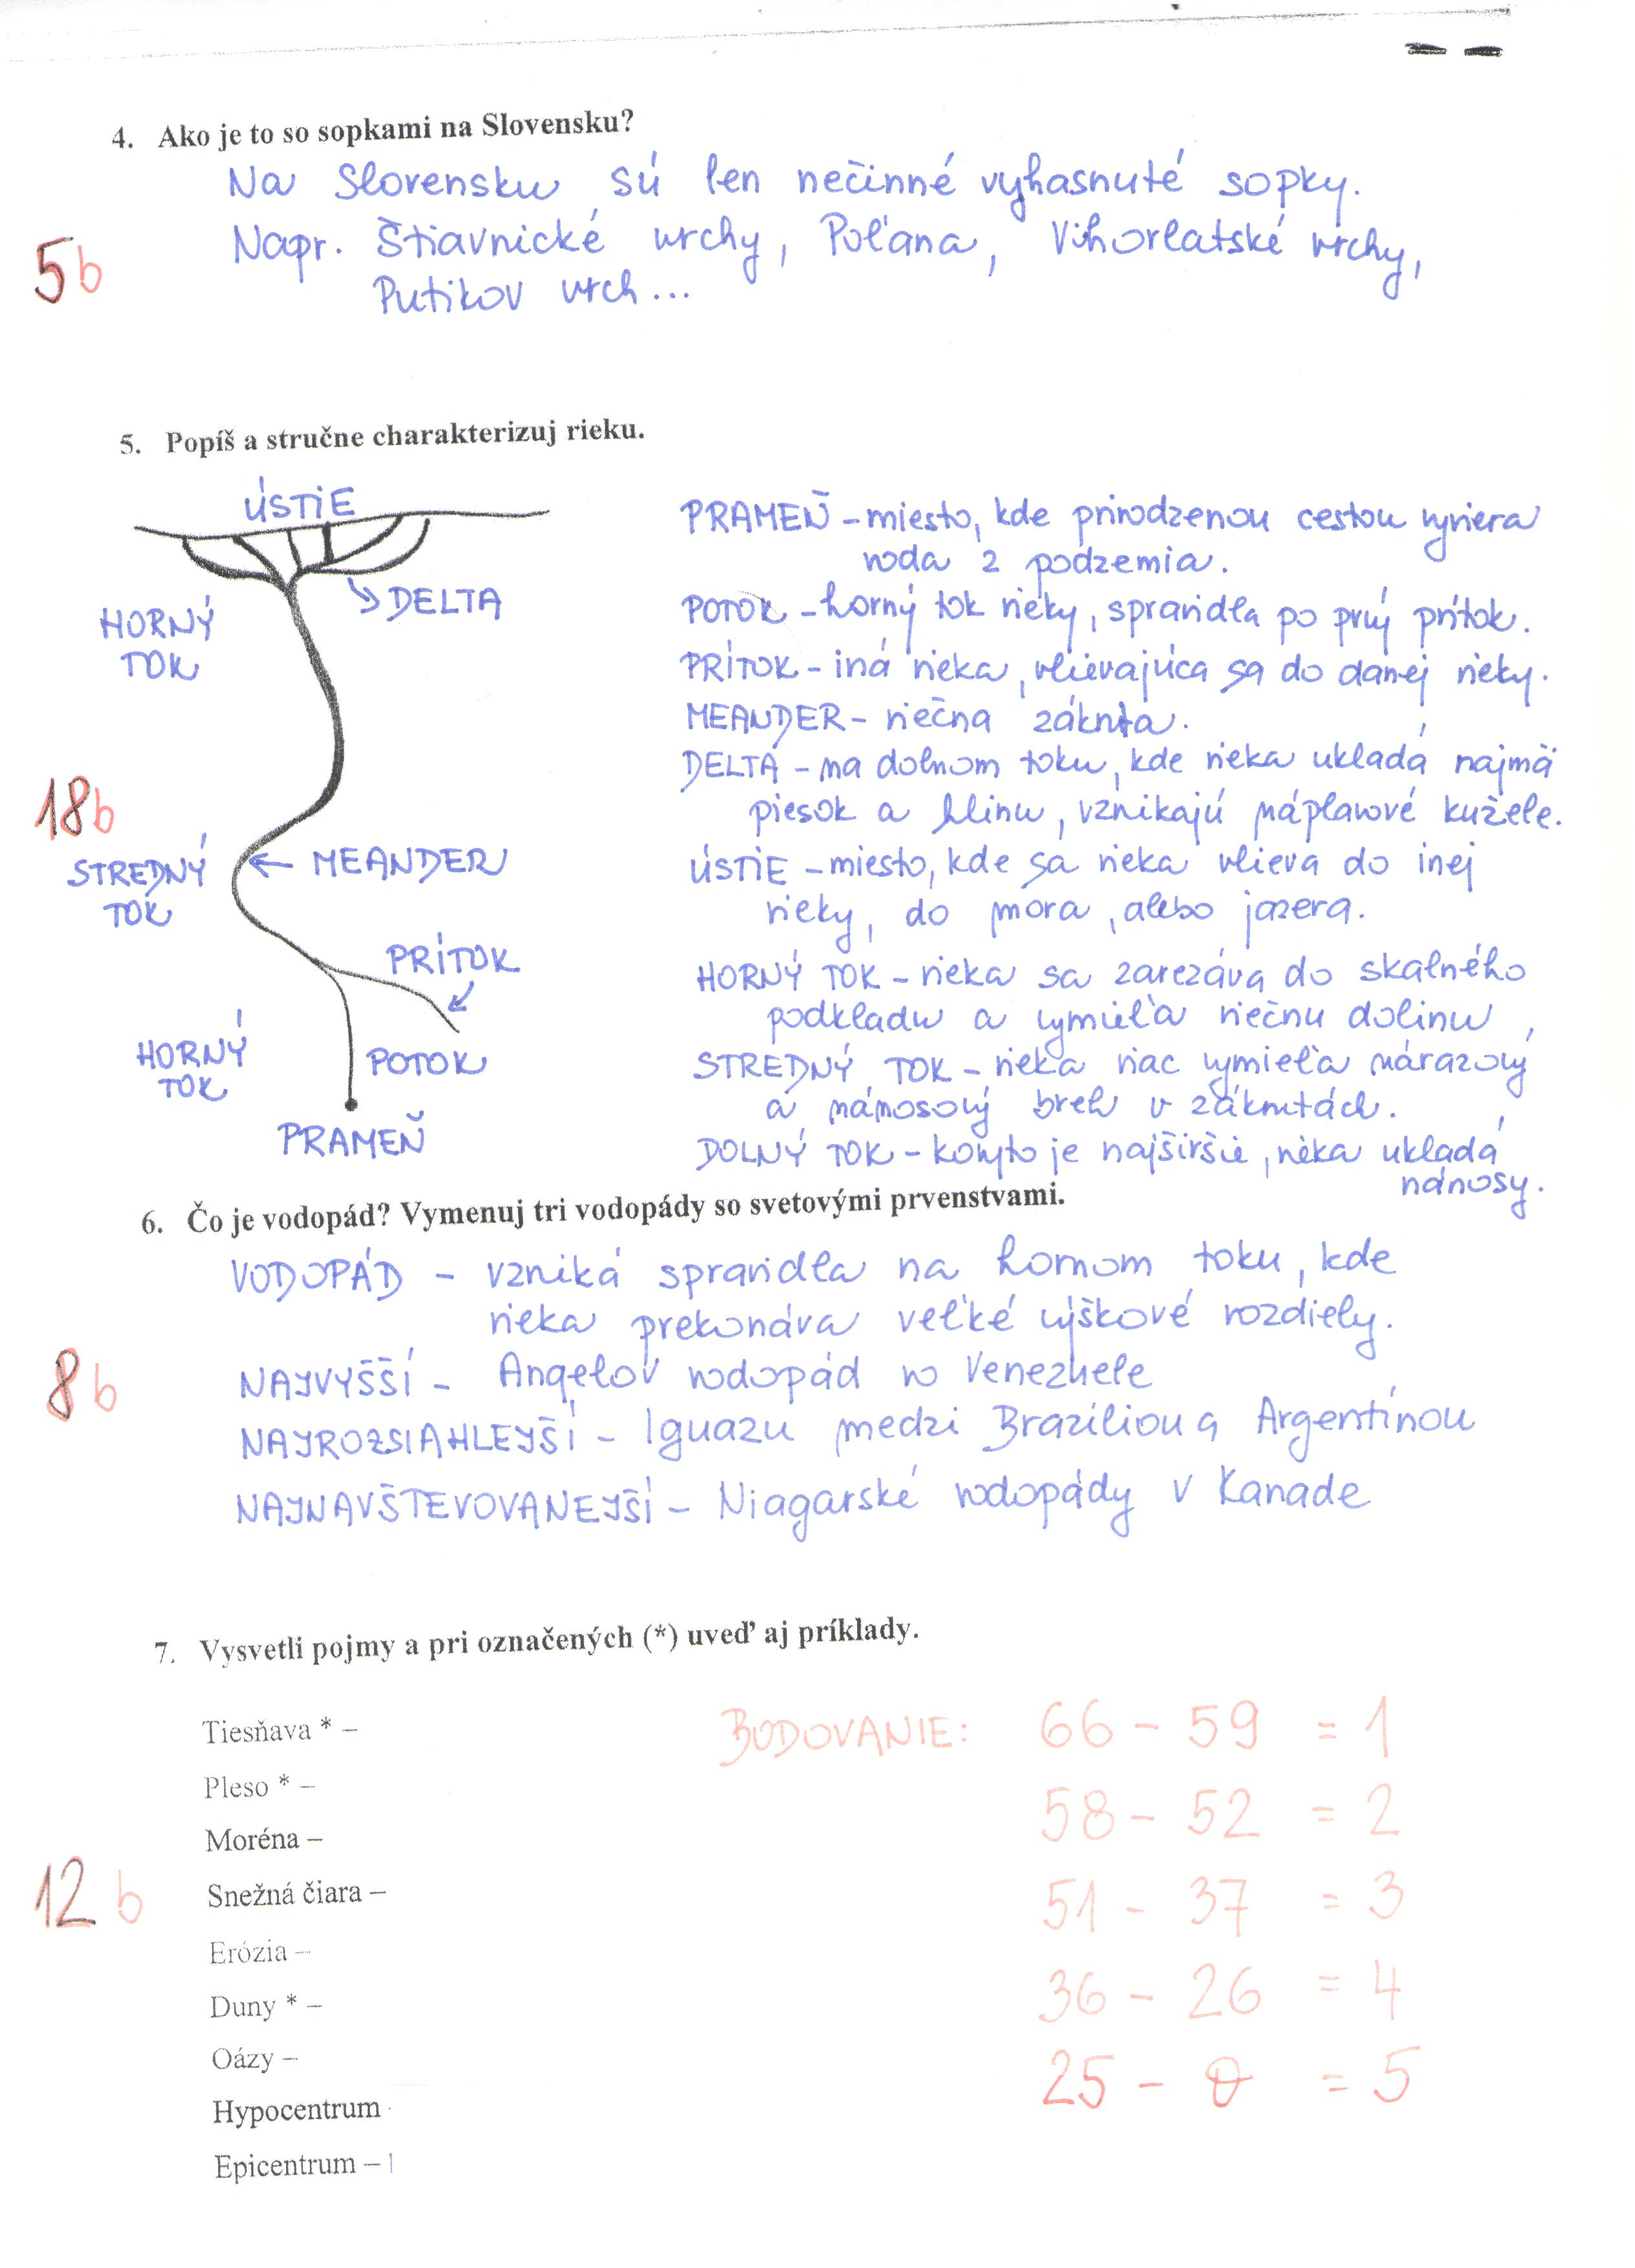 4. Ako je to so sopkami na Slovensku?
Na Slovensku sú len nečinné vyhasnuté sopky.
Napr. Štiavnické vrchy, Poľana, Vihorlatské vrchy,
5b
Putikov vrch...
5. Popíš a stručne charakterizuj rieku.
ÚSTIE
DELTA
HORNÝ
TOK
18b
STREDNÝ
TOK
MEANDER
PRÍTOK
HORNÝ
TOK
POTOK
PRAMEŇ
PRAMEŇ - miesto, kde prirodzenou cestou vyviera
voda z podzemia.
POTOK - horný tok rieky, spravidla po prvý prítok.
PRÍTOK - iná rieka, vlievajúca sa do danej rieky.
MEANDER - riečna zákruta.
DELTA - na dolnom toku, kde rieka ukladá najmä
piesok a hlinu, vznikajú náplavové kužele.
ÚSTIE - miesto, kde sa rieka vlieva do inej
rieky, do mora, alebo jazera.
HORNÝ TOK - rieka sa zarezáva do skalného
podkladu a vymieľa riečnu dolinu,
STREDNÝ TOK - rieka viac vymieľa nárazový
a nánosový breh v zákrutách.
DOLNÝ TOK - koryto je najširšie, rieka ukladá
nánosy.
6. Čo je vodopád? Vymenuj tri vodopády so svetovými prvenstvami.
VODOPÁD - vzniká spravidla na hornom toku, kde
rieka prekonáva veľké výškové rozdiely.
8b
NAJVYŠŠÍ - Angelov vodopád vo Venezuele
NAJROZSIAHLEJŠÍ - Iguazu medzi Brazíliou a Argentínou
NAJNAVŠTEVOVANEJŠÍ - Niagarské vodopády v Kanade
7. Vysvetli pojmy a pri označených (*) uveď aj príklady.
Tiesňava * –
Pleso * –
Moréna –
12b
Snežná čiara –
Erózia –
Duny * –
Oázy –
Hypocentrum
Epicentrum –
BODOVANIE: 66 - 59 = 1
58 - 52 = 2
51 - 37 = 3
36 - 26 = 4
25 - 0 = 5